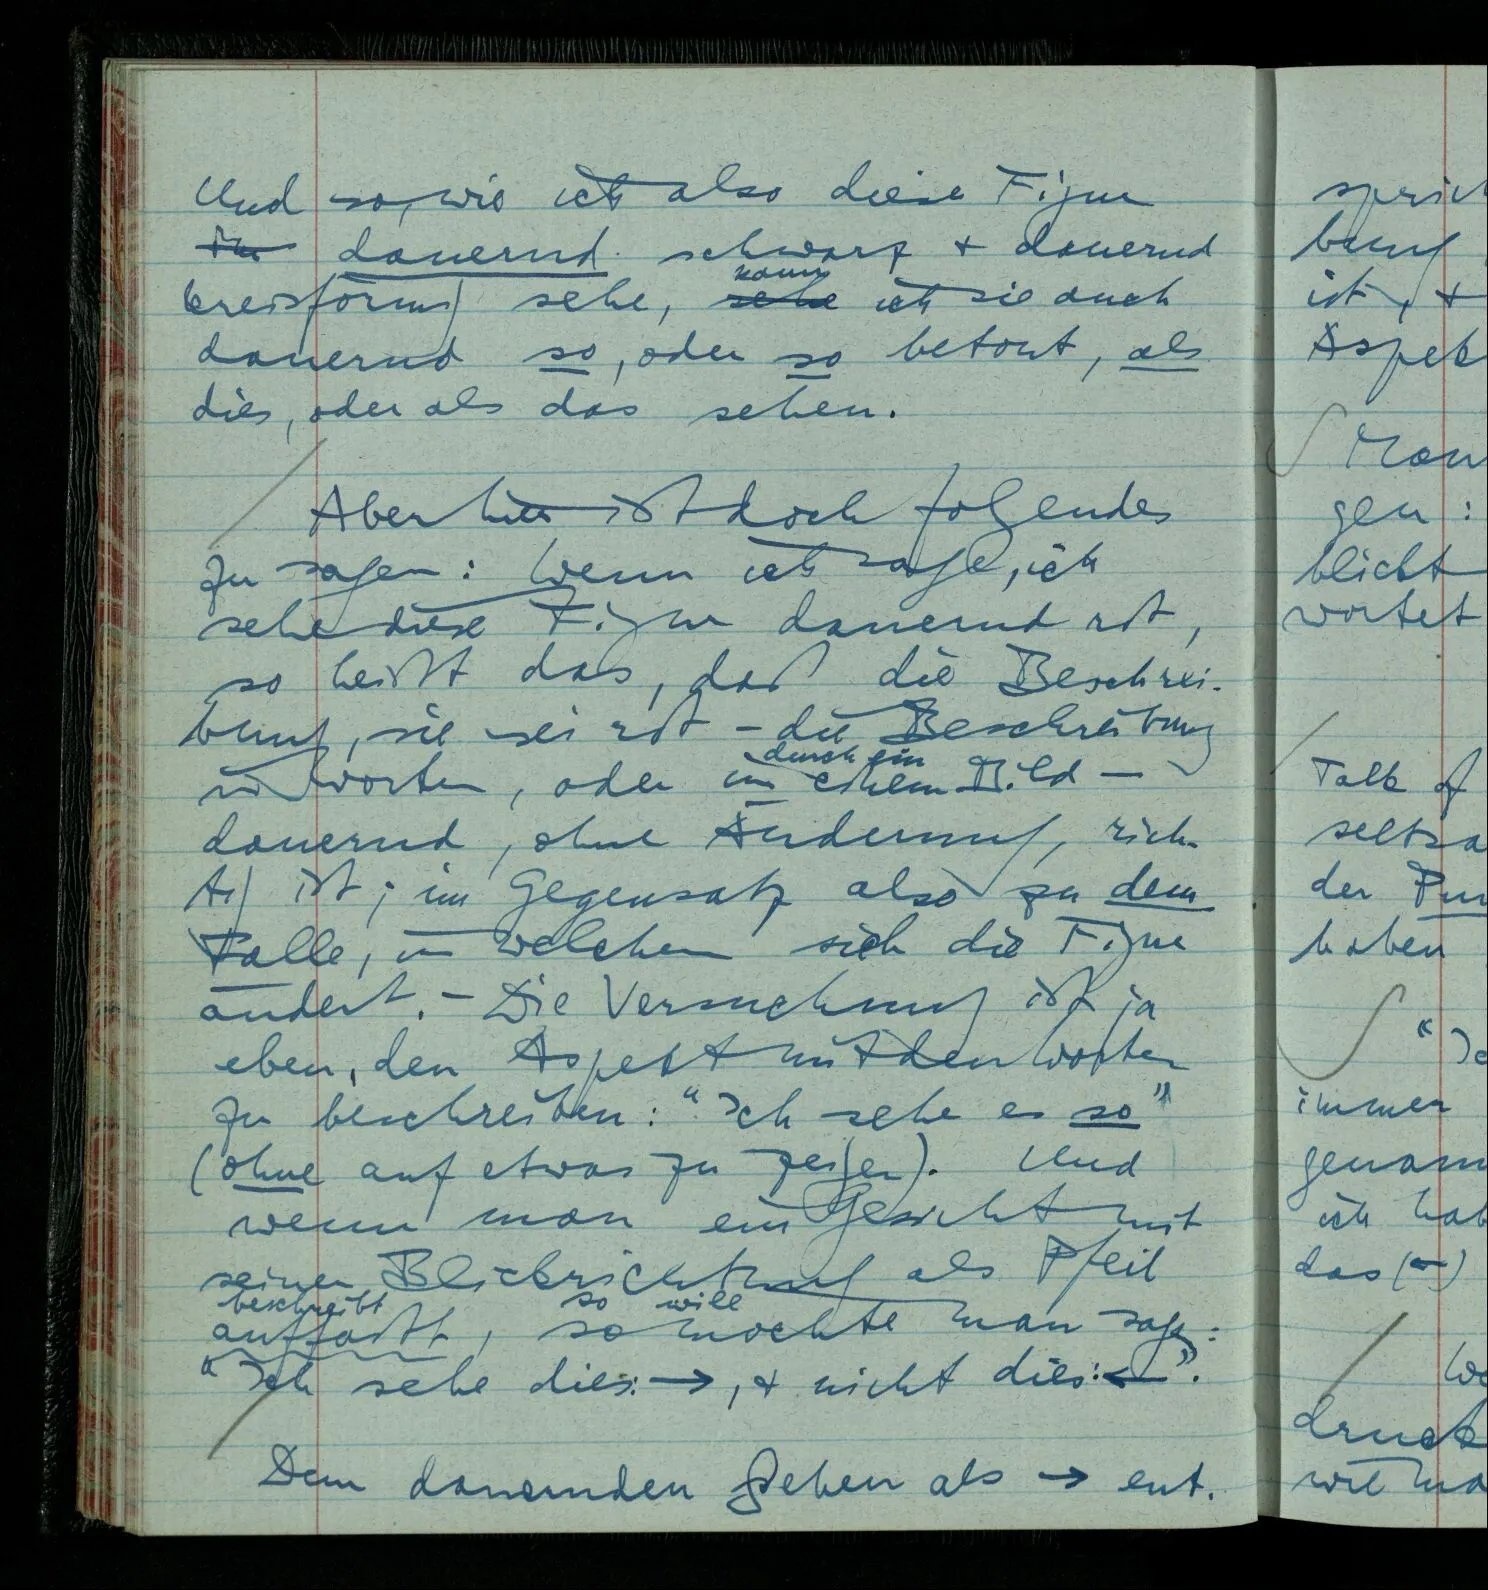 Und so, wie ich also diese Figur
dauernd schwarz & dauernd
kann
kreisförmig sehe, sehe ich sie auch
dauernd so, oder so betont, als
dies, oder als das sehen.
Aber hier ist doch folgendes
zu sagen: Wenn ich sage, ich
sehe diese Figur dauernd rot,
so heißt das, daß die Beschrei-
bung, sie sei rot – die Beschreibung
durch ein
in Worten, oder im einem Bild –
dauernd, ohne Änderung, rich-
tig ist; im Gegensatz also zu dem
Falle, in welchem sich die Figur
ändert. – Die Versuchung ist ja
eben, den Aspekt mit den Worten
zu beschreiben: “Ich sehe es so”
(ohne auf etwas zu zeigen). Und
wenn man ein Gesicht mit
seiner Blickrichtung als Pfeil
beschreibt so will
auffaßt, so möchte man sagen:
“Ich sehe dies: →, & nicht dies: ←”.
Dem dauernden Sehen als → ent-
sprich
bung
ist, &
Aspek
Man
gen:
blickt
wortet
Talk of
seltsa
der Pun
haben
“Ic
immer
genom
ich hab
das (←)
We
druck
wie ma